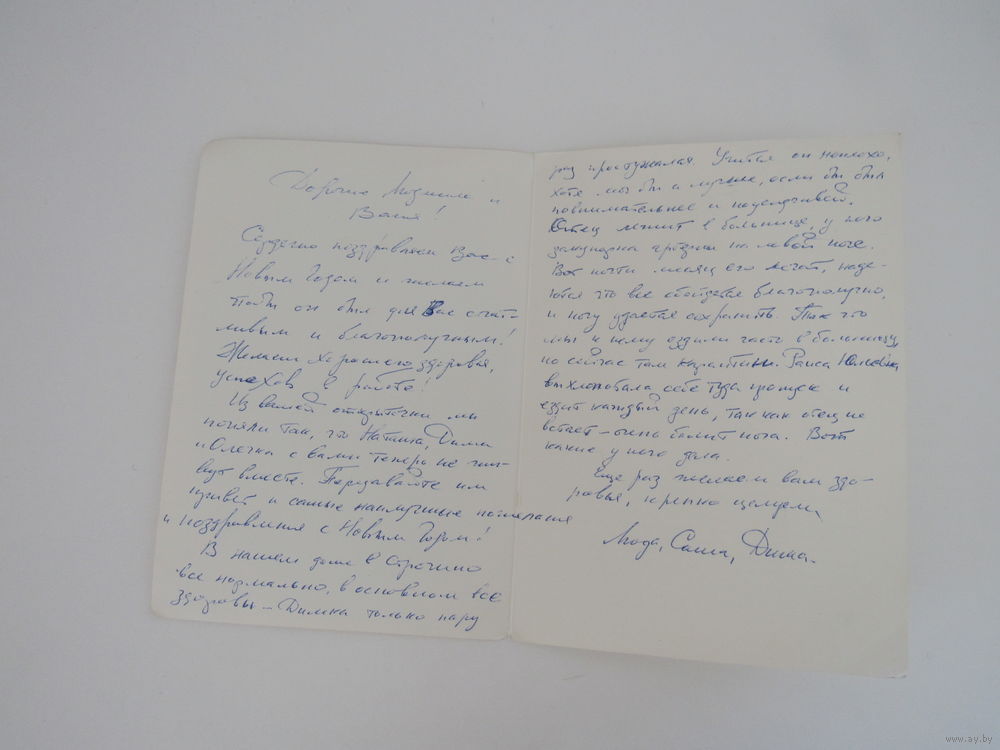 Дорогие Людмила и
Ваня!
Сердечно поздравляем Вас с
Новым Годом и желаем
чтобы он был для Вас счаст-
ливым и благополучным!
Желаем хорошего здоровья,
успехов в работе!
Из вашей открыточки мы
поняли так, что Наташа, Дима
и Олечка с вами теперь не жи-
вут вместе. Передавайте им
привет и самые наилучшие пожелания
и поздравления с Новым Годом!
В нашем доме в Строгино
все нормально, в основном все
здоровы – Димка только пару
раз простужался. Учится он неплохо,
хотя мог бы и лучше, если бы был
повнимательнее и
Отец лежит в больнице, у него
закупорка артерии на левой ноге.
Вот почти месяц его лечат, наде-
ются что все обойдется благополучно,
и ногу удастся сохранить. Так что
мы к нему ездили часто в больницу,
но сейчас там карантин. Раиса
выхлопотала себе туда пропуск и
ездит каждый день, так как отец не
встает – очень болит нога. Вот
такие у него дела.
Еще раз желаем вам здо-
ровья, крепко целуем,
Люда, Саша, Дима.
www.ay.by